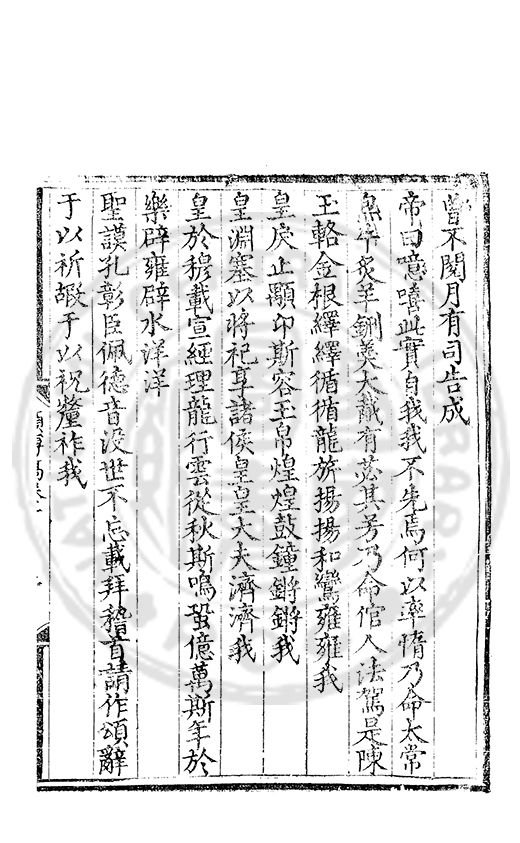 曾不閱月有司告成
帝曰噫嘻此實自我我不先焉何以率惰乃命太常
炙羊鉶羹大胾有苾其芳乃命倌人法駕是陳
玉輅金根繹繹循循龍旂揚揚和鸞雍雍我
皇戾止顒卬斯容玉帛煌煌鼓鐘鏘鏘我
皇淵塞以將祀享諸侯皇皇大夫濟濟我
皇於穆載宣經理龍行雲從秋斯鳴蛩億萬斯年於
樂辟雍辟水洋洋
聖謨孔彰臣佩德音没世不忘載拜稽首請作頌辭
于以祈嘏于以祝釐祚我